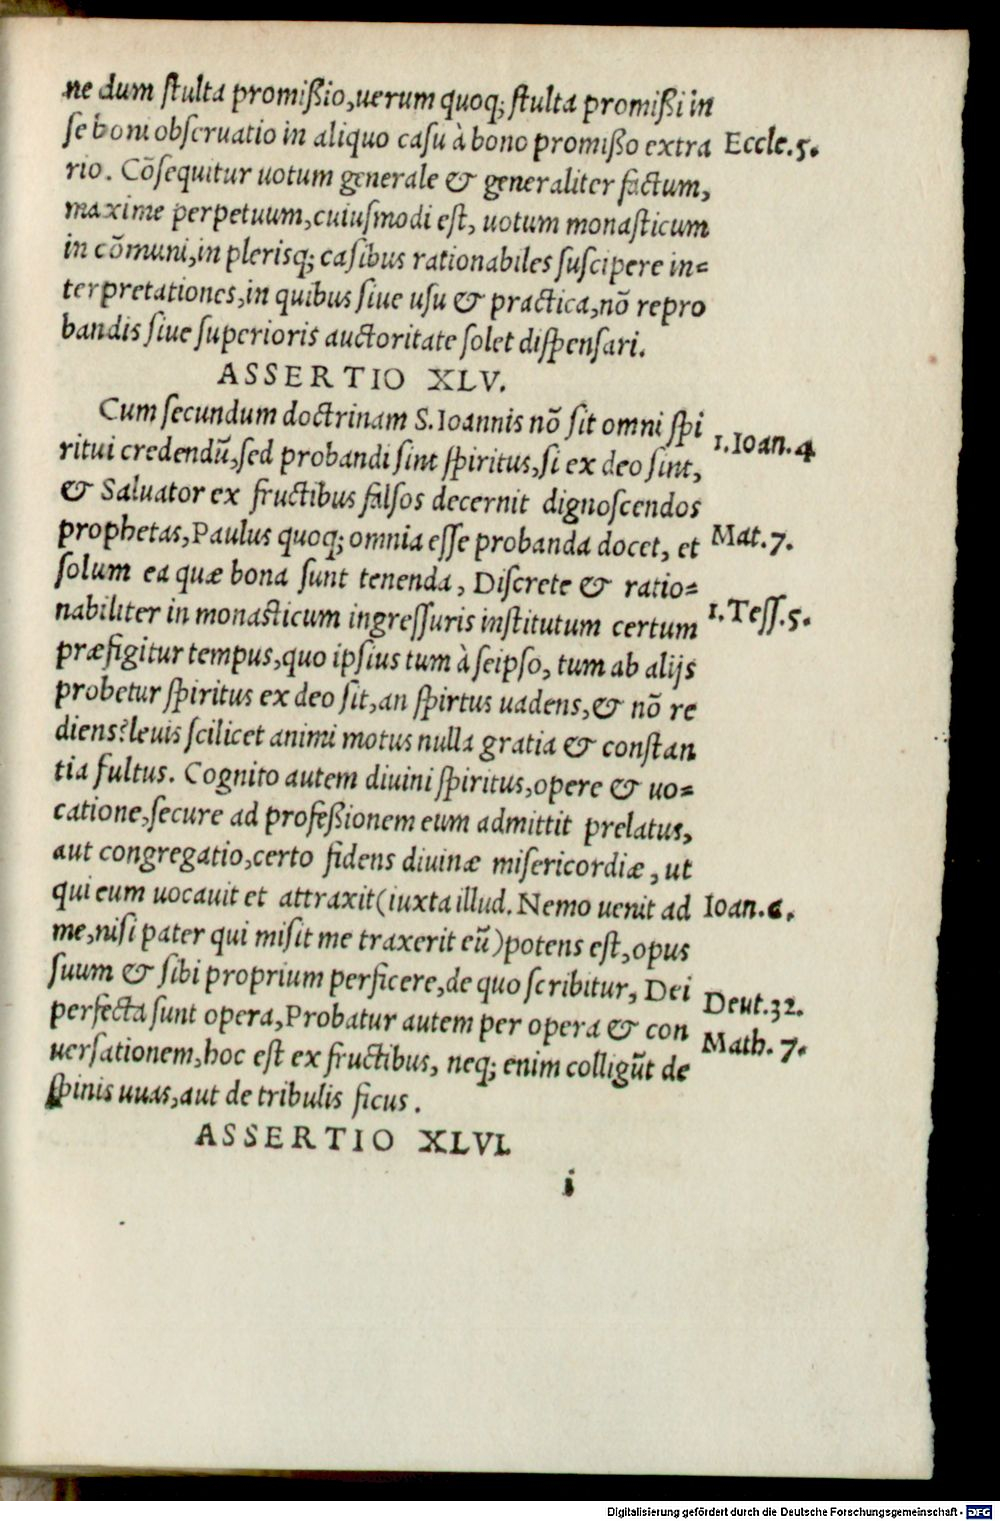 ne dum ſtulta promißio,uerum quoq; ſtulta promißi in
ſe boni obſeruatio in aliquo caſu à bono promißo extra Eccle.5.
rio. Cōſequitur uotum generale & generaliter factum,
maxime perpetuum,cuiuſmodi eſt, uotum monaſticum
in cōmuni,in plerisq; caſibus rationabiles ſuſcipere in=
terpretationes,in quibus ſiue uſu & practica,nō repro
bandis ſiue ſuperioris auctoritate ſolet diſpenſari.
ASSERTIO XLV.
Cum ſecundum doctrinam S.Ioannis nō ſit omni ſpi
ritui credendū,ſed probandi ſint ſpiritus,ſi ex deo ſint, 1.Ioan.4
& Saluator ex fructibus falſos decernit dignoſcendos
prophetas,Paulus quoq; omnia eſſe probanda docet, et Mat.7.
ſolum ea quæ bona ſunt tenenda, Diſcrete & ratio=
nabiliter in monaſticum ingreſſuris inſtitutum certum 1.Teſſ.5.
præfigitur tempus,quo ipſius tum à ſeipſo, tum ab alijs
probetur ſpiritus ex deo ſit,an ſpirtus uadens,& nō re
diens?leuis ſcilicet animi motus nulla gratia & conſtan
tia fultus. Cognito autem diuini ſpiritus,opere & uo=
catione,ſecure ad profeßionem eum admittit prelatus,
aut congregatio,certo fidens diuinæ miſericordiæ, ut
qui eum uocauit et attraxit(iuxta illud. Nemo uenit ad Ioan.6.
me,niſi pater qui miſit me traxerit eū)potens eſt,opus
ſuum & ſibi proprium perficere,de quo ſcribitur, Dei Deut.32.
perfecta ſunt opera,Probatur autem per opera & con
uerſationem,hoc eſt ex fructibus, neq; enim colligūt de Math. 7.
ſpinis uuas,aut de tribulis ficus.
ASSERTIO XLVI.
i
Digitalisierung gefördert durch die Deutsche Forschungsgemeinschaft - DFG